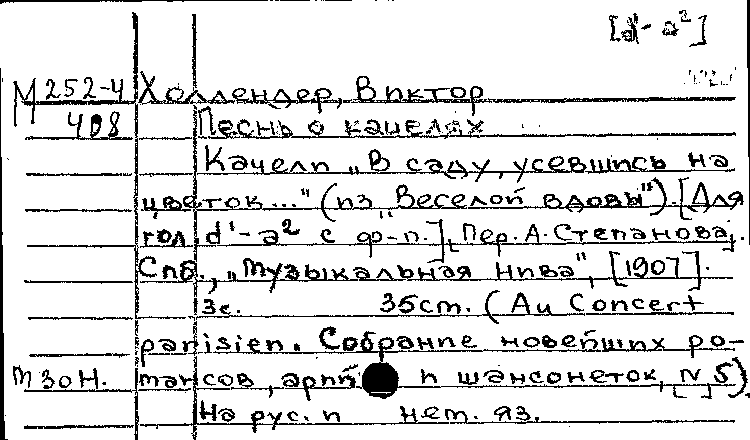 [d'- a²]
М 252-4 Холлендер, Виктор
408 Песнь о качелях
Качели „В саду, усевшись на
цветок..." (из „Веселой вдовы"). [Для
гол. d'-a² с ф-п.]. Пер. А. Степанова.
Спб., „Музыкальная нива", [1907].
3с. 35cm. (Au Concert
parisien. Собрание новейших ро-
М 30Н. мансов, арий и шансонеток, N 5)
На рус. и нем. яз.